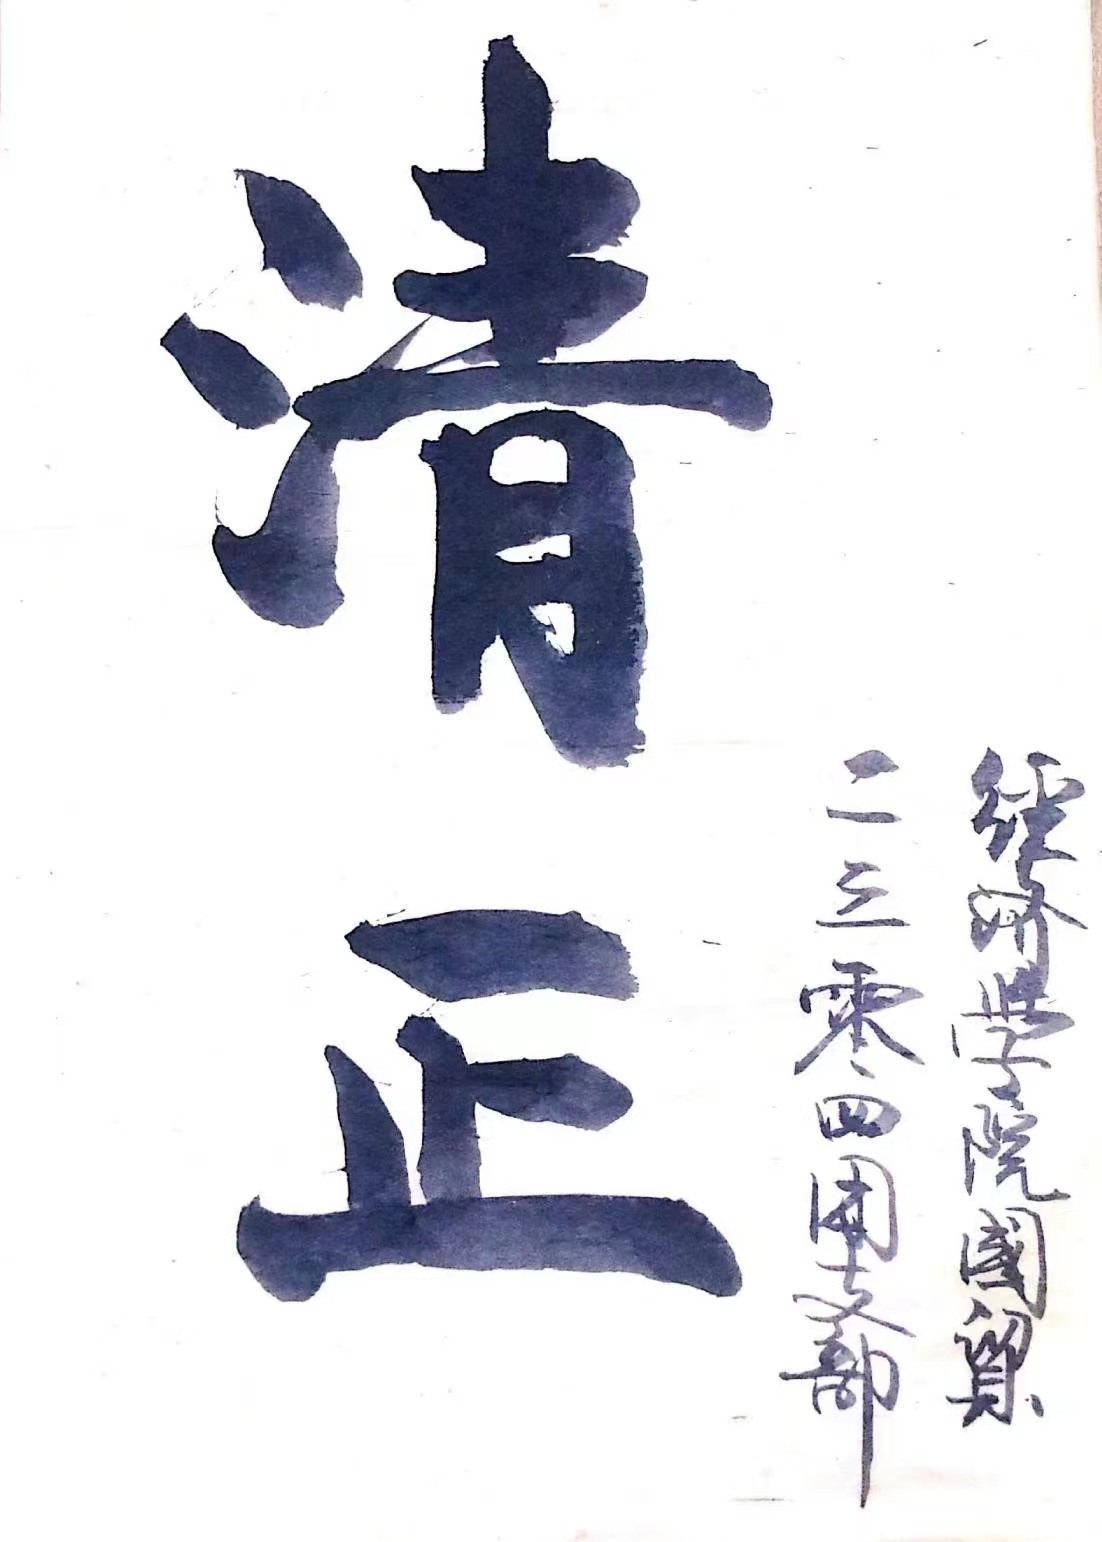 清正
經濟學院國貿
二三零四团支部